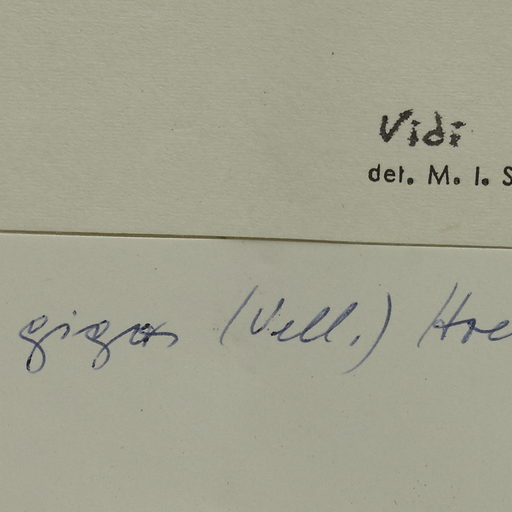 Vidi
det. M. I. S
gigas (Vell.) Hoe